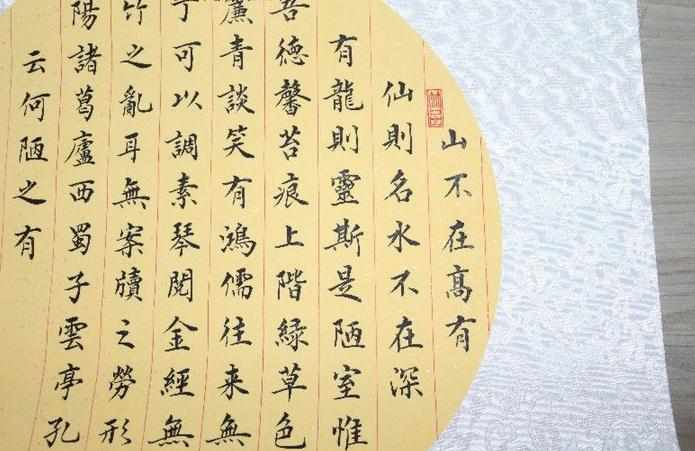 山不在高有
仙則名水不在深
有龍則靈斯是陋室惟
吾德馨苔痕上階緑草色
簾青談笑有鴻儒往来無
丁可以調素琴閱金經無
竹之亂耳無案牘之勞形
陽諸葛廬西蜀子雲亭孔
云何陋之有